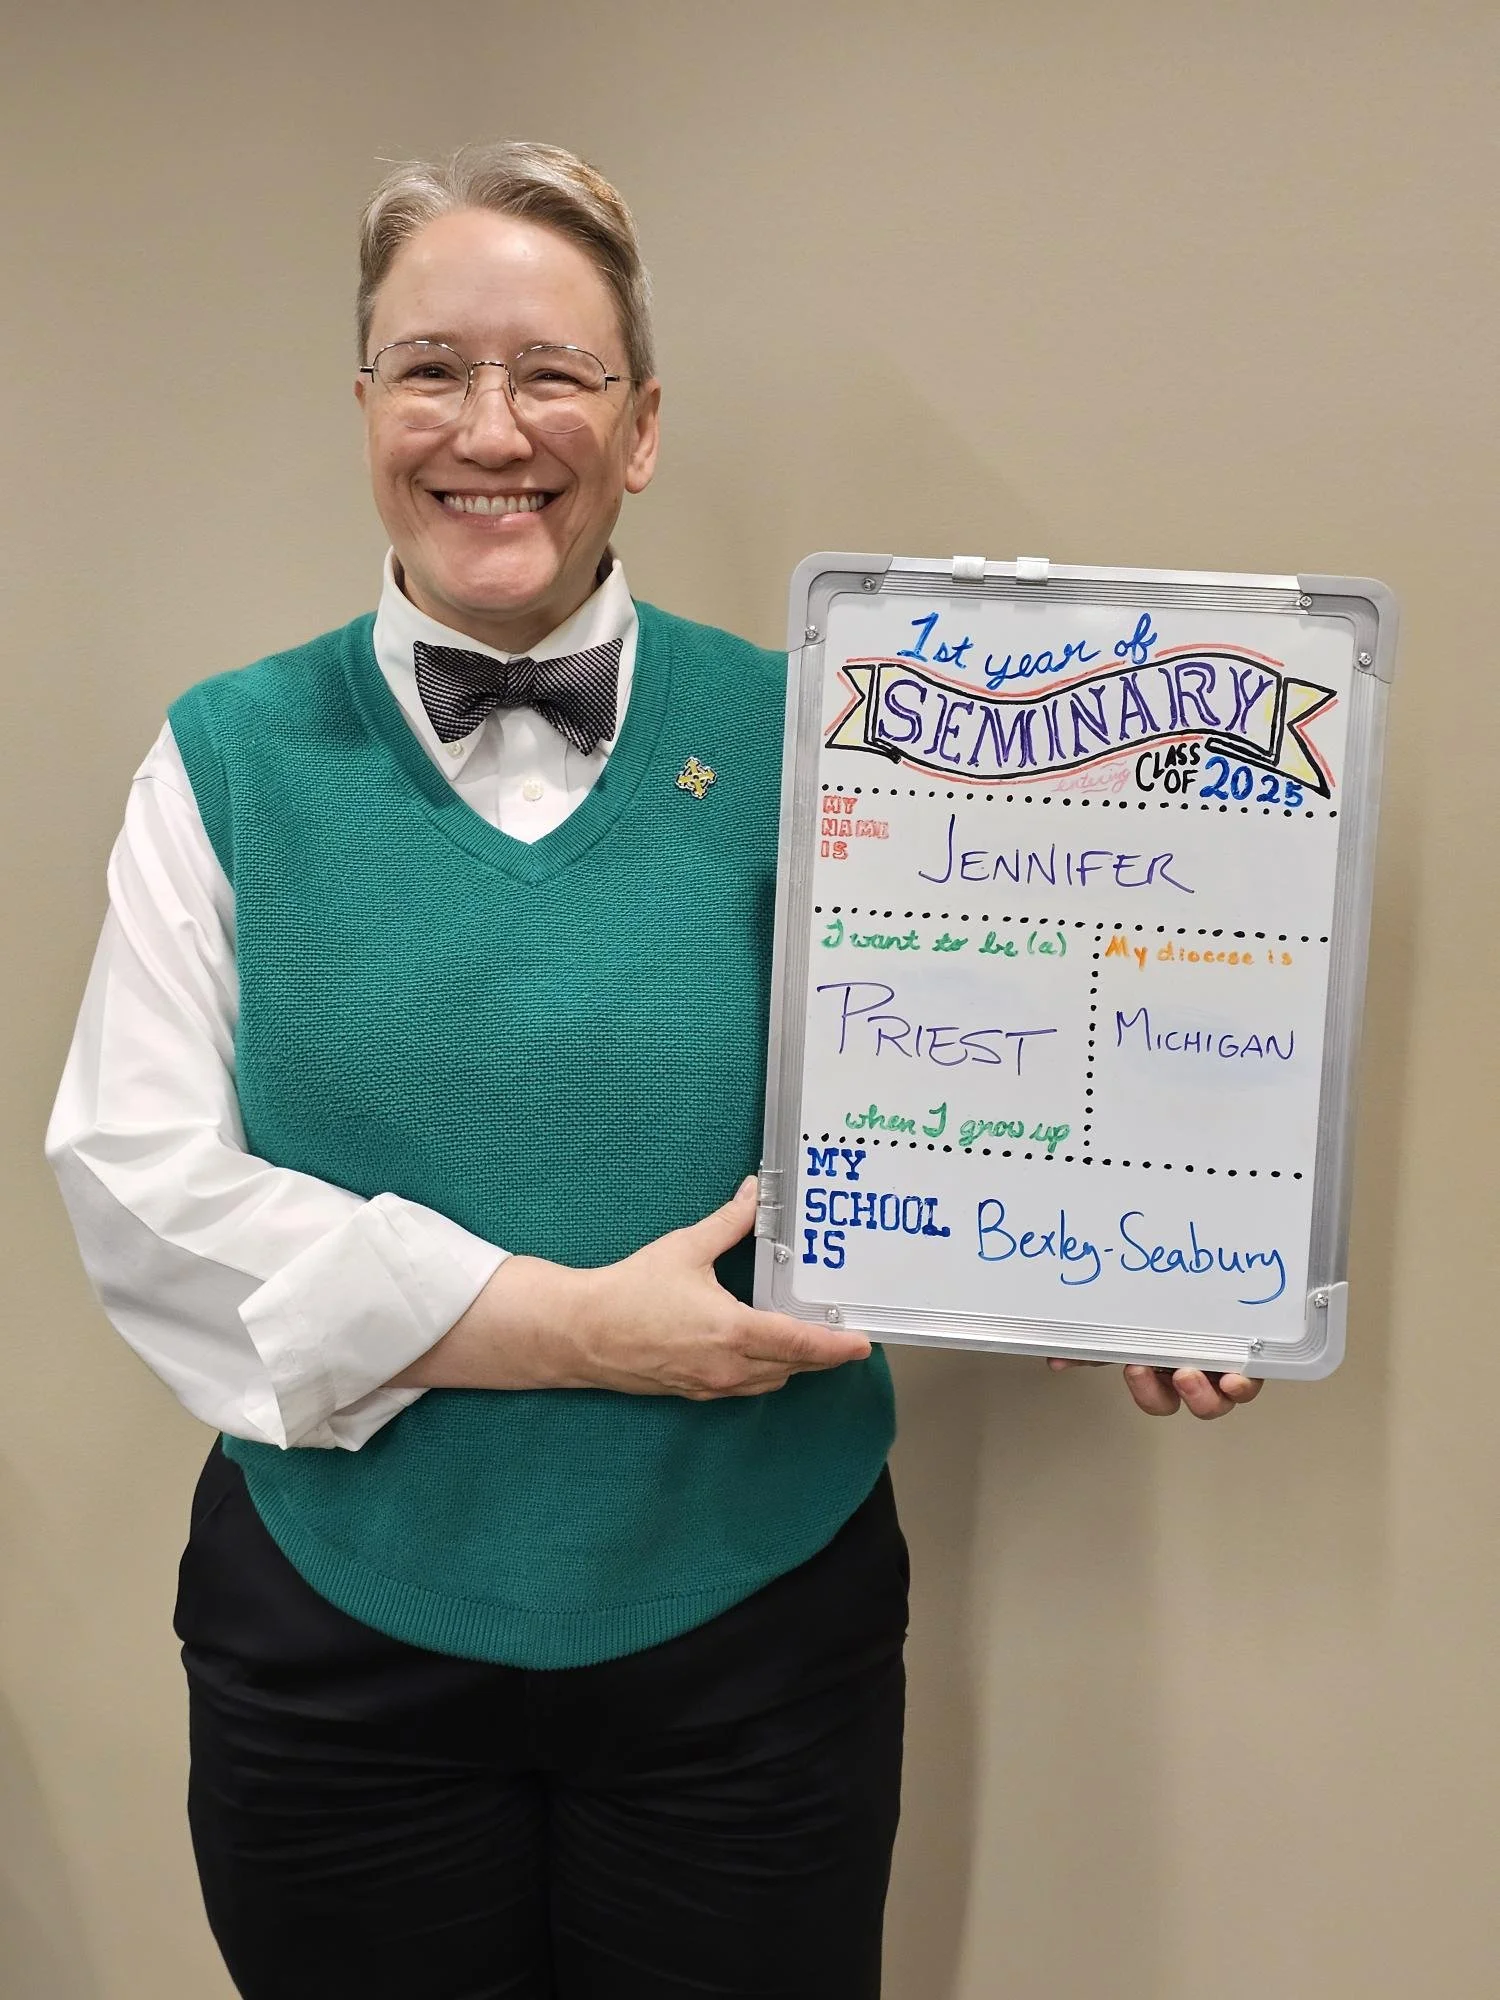 1st year of
SEMINARY
entering CLASS OF 2025
MY
NAME
IS
JENNIFER
I want to be (a)
PRIEST
when I grow up
My diocese is
MICHIGAN
MY
SCHOOL
IS
Bexley-Seabury